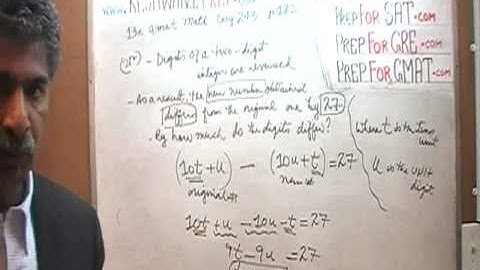 www.
13e Gmat Math
p 172
(2M) - Digits of a two-digit
integer are reversed
- As a result, the new number obtained
differs from the original one by 27
- By how much do the digits differ?
(10t+u) - (10u+t) = 27
original
10t + u - 10u - t = 27
9t - 9u = 27
PREPFORSAT.COM
PREPFORGRE.COM
PREPFORGMAT.COM
where t is the tens
u is the unit
digit